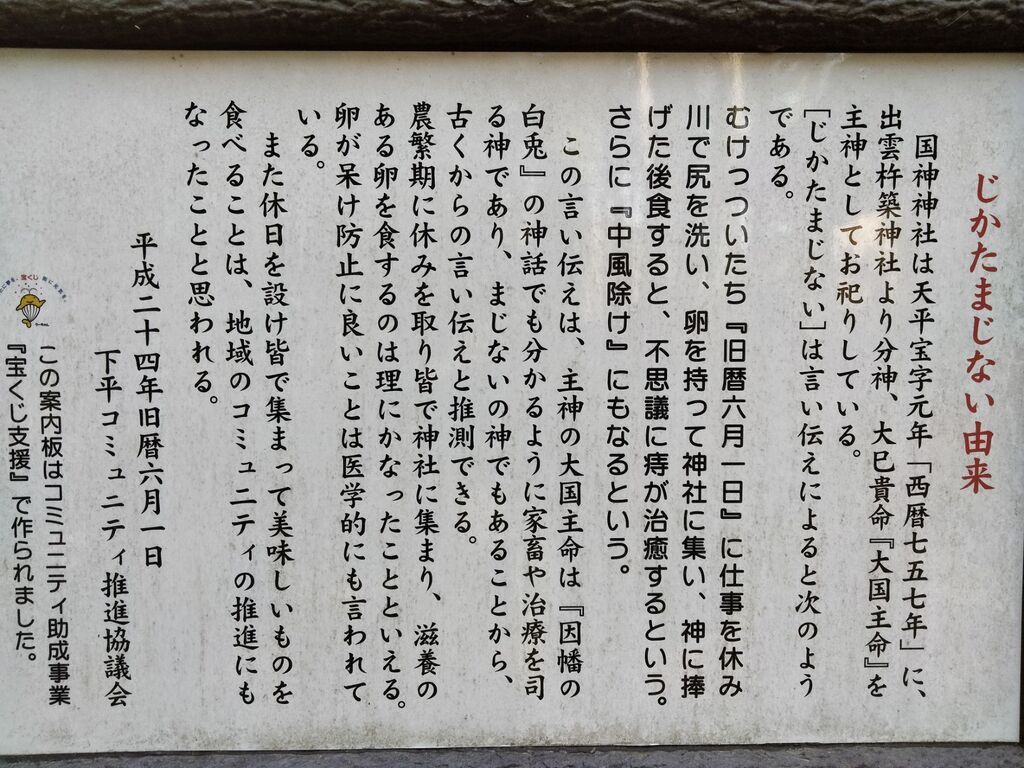 じかたまじない由来
国神神社は天平宝字元年「西暦七五七年」に、
出雲杵築神社より分神、大巳貴命『大国主命』を
主神としてお祀りしている。
[じかたまじない]は言い伝えによると次のよう
である。
むけっついたち『旧暦六月一日』に仕事を休み
川で尻を洗い、卵を持って神社に集い、神に捧
げた後食すると、不思議に痔が治癒するという。
さらに『中風除け』にもなるという。
この言い伝えは、主神の大国主命は『因幡の
白兎』の神話でも分かるように家畜や治療を司
る神であり、まじないの神でもあることから、
古くからの言い伝えと推測できる。
農繁期に休みを取り皆で神社に集まり、滋養の
ある卵を食するのは理にかなったことといえる。
卵が呆け防止に良いことは医学的にも言われて
いる。
また休日を設け皆で集まって美味しいものを
食べることは、地域のコミュニティの推進にも
なったことと思われる。
平成二十四年旧暦六月一日
下平コミュニティ推進協議会
この案内板はコミュニティ助成事業
『宝くじ支援』で作られました。